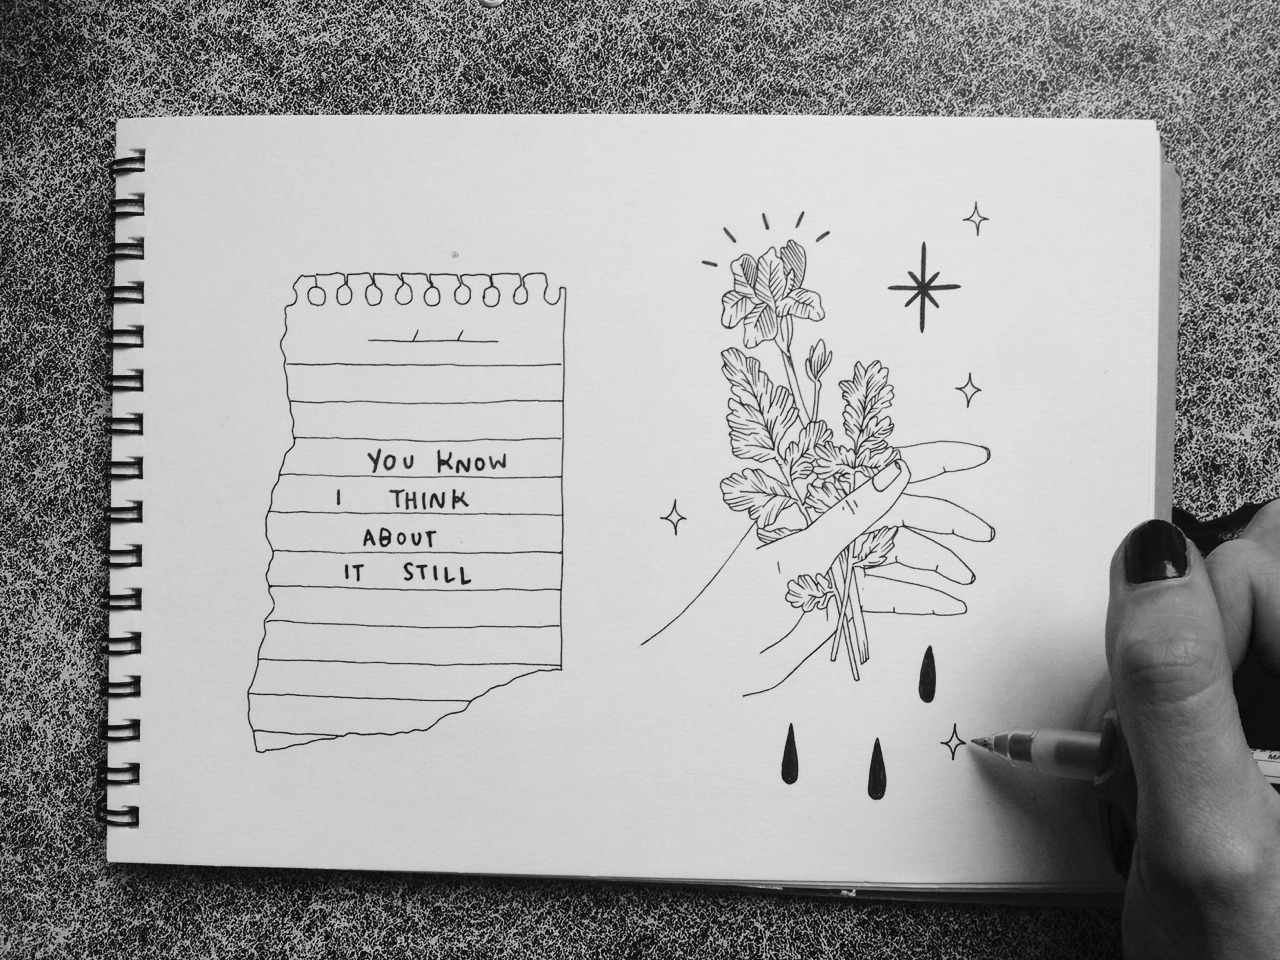 YOU KNOW
I THINK
ABOUT
IT STILL